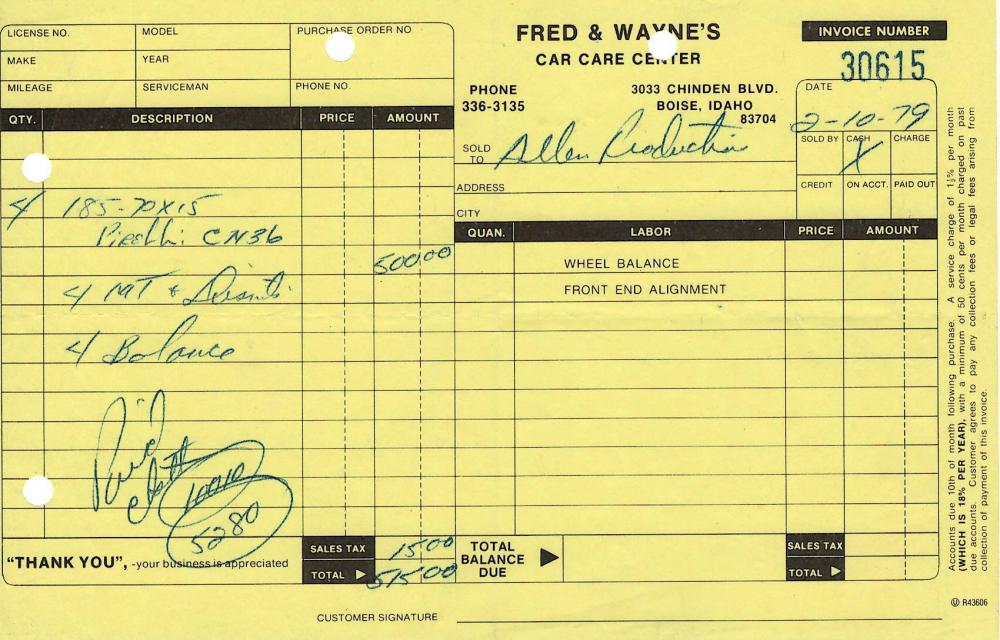 LICENSE NO. MODEL PURCHASE ORDER NO
MAKE YEAR
MILEAGE SERVICEMAN PHONE NO.
FRED & WAYNE'S
CAR CARE CENTER
PHONE
336-3135
3033 CHINDEN BLVD.
BOISE, IDAHO
83704
INVOICE NUMBER
30615
DATE
2-10-79
SOLD BY CASH CHARGE
X
CREDIT ON ACCT. PAID OUT
SOLD TO Allen Production
ADDRESS
CITY
QTY. DESCRIPTION PRICE AMOUNT
4 185-70X15
Pirelli CN36
500 00
4 MT &
4 Balance
Paid
10010
5280
"THANK YOU", -your business is appreciated
SALES TAX 15 00
TOTAL 515 00
QUAN. LABOR PRICE AMOUNT
WHEEL BALANCE
FRONT END ALIGNMENT
TOTAL
BALANCE
DUE
SALES TAX
TOTAL
CUSTOMER SIGNATURE
Accounts due 10th of month following purchase. A service charge of 1½% per month
(WHICH IS 18% PER YEAR), with a minimum of 50 cents per month charged on past
due accounts. Customer agrees to pay any collection fees or legal fees arising from
collection of payment of this invoice.
R43606